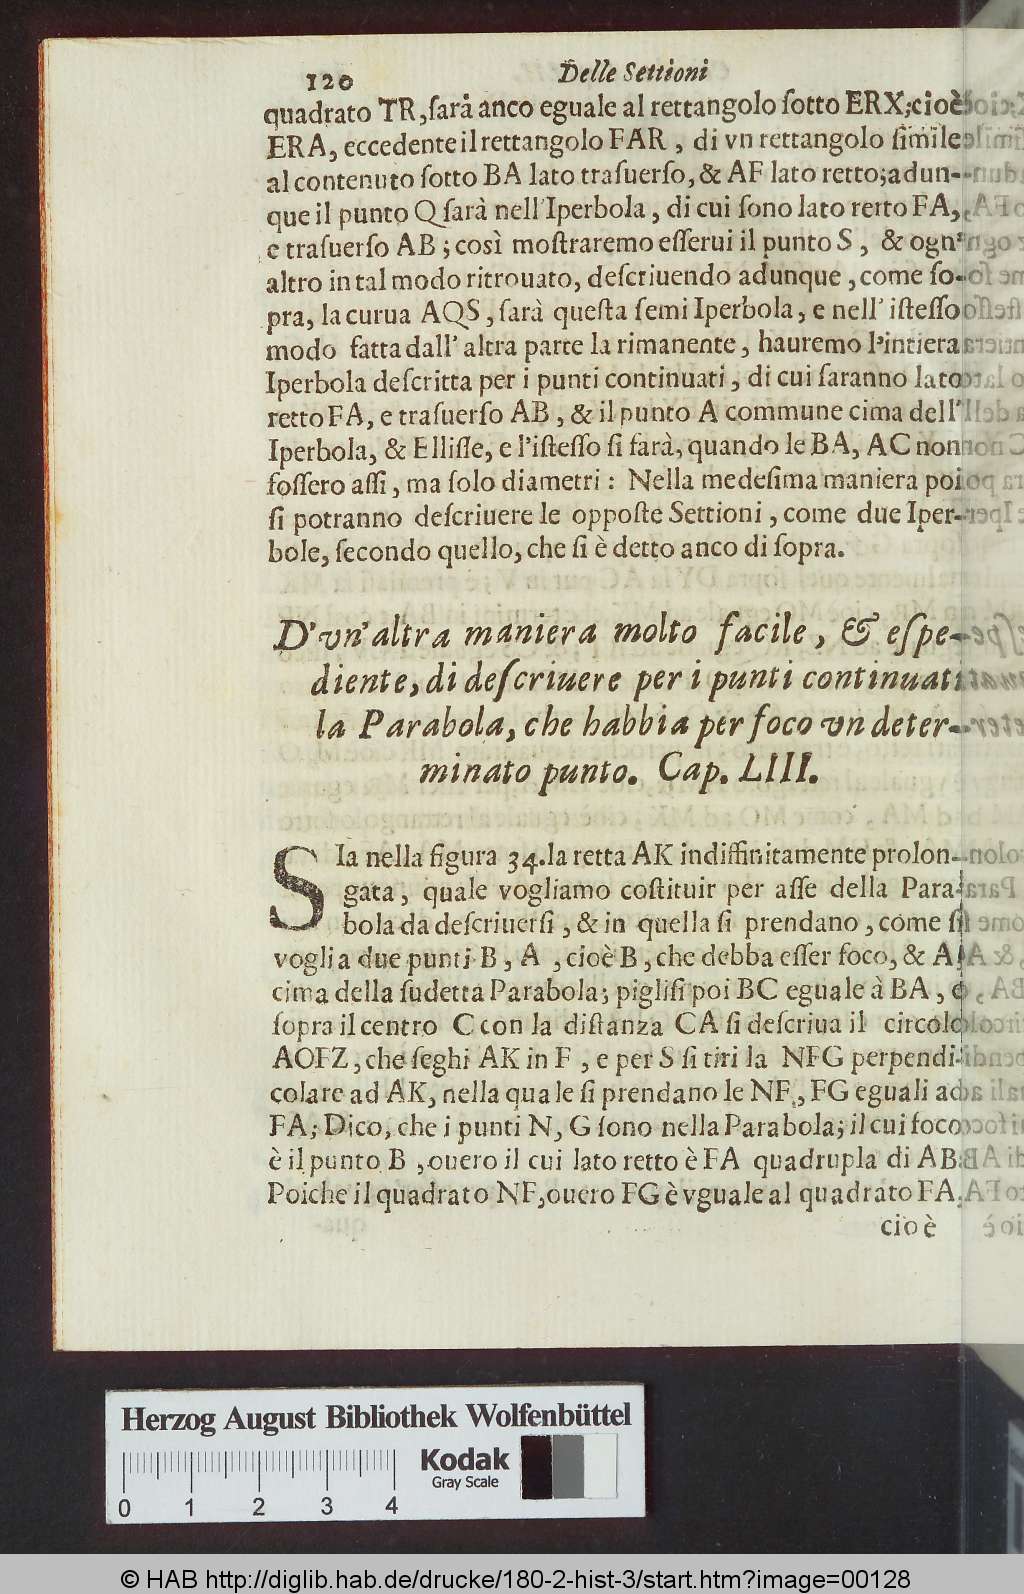 120 Delle Settioni
quadrato TR, ſarà anco eguale al rettangolo ſotto ERX; cioè
ERA, eccedente il rettangolo FAR, di vn rettangolo ſimile
al contenuto ſotto BA lato traſuerſo, & AF lato retto; adun-
que il punto Q ſarà nell'Iperbola, di cui ſono lato retto FA,
e traſuerſo AB; così moſtraremo eſſerui il punto S, & ogn'
altro in tal modo ritrouato, deſcriuendo adunque, come ſo-
pra, la curua AQS, ſarà queſta ſemi Iperbola, e nell' iſteſſo
modo fatta dall' altra parte la rimanente, hauremo l'intiera
Iperbola deſcritta per i punti continuati, di cui ſaranno lato
retto FA, e traſuerſo AB, & il punto A commune cima dell'
Iperbola, & Elliſſe, e l'iſteſſo ſi farà, quando le BA, AC non
foſſero aſſi, ma ſolo diametri: Nella medeſima maniera poi
ſi potranno deſcriuere le oppoſte Settioni, come due Iper-
bole, ſecondo quello, che ſi è detto anco di ſopra.
D'vn'altra maniera molto facile, & eſpe-
diente, di deſcriuere per i punti continuati
la Parabola, che habbia per foco vn deter-
minato punto. Cap. LIII.
SIa nella figura 34. la retta AK indiffinitamente prolon-
gata, quale vogliamo coſtituir per aſſe della Para-
bola da deſcriuerſi, & in quella ſi prendano, come ſi
voglia due punti B, A, cioè B, che debba eſſer foco, & A
cima della ſudetta Parabola; pigliſi poi BC eguale à BA, e
ſopra il centro C con la diſtanza CA ſi deſcriua il circolo
AOFZ, che ſeghi AK in F, e per S ſi tiri la NFG perpendi-
colare ad AK, nella quale ſi prendano le NF, FG eguali ad
FA; Dico, che i punti N, G ſono nella Parabola; il cui foco
è il punto B, ouero il cui lato retto è FA quadrupla di AB:
Poiche il quadrato NF, ouero FG è vguale al quadrato FA,
cioè
Herzog August Bibliothek Wolfenbüttel
Kodak
Gray Scale
0 1 2 3 4
© HAB http://diglib.hab.de/drucke/180-2-hist-3/start.htm?image=00128